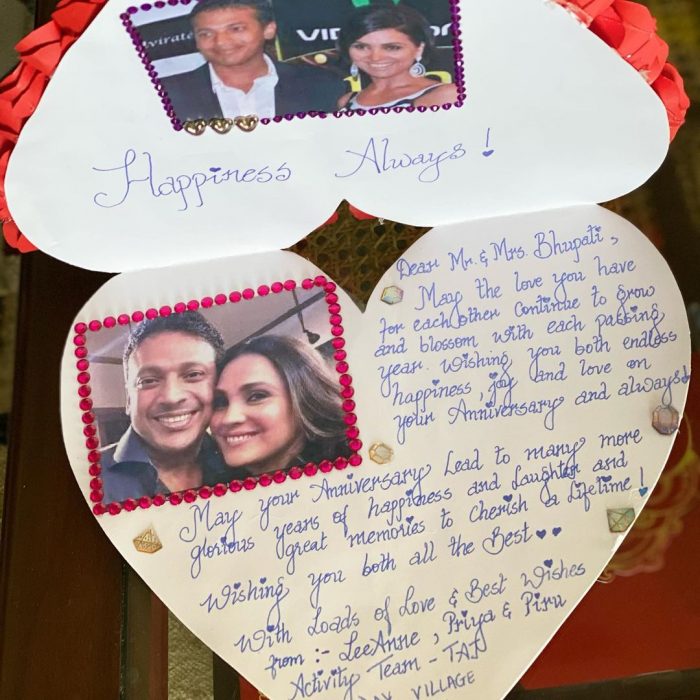 Happiness Always!
Dear Mr. & Mrs. Bhupati,
May the love you have
for each other continue to grow
and blossom with each passing
year. Wishing you both endless
happiness, joy and love on
your Anniversary and always
May your Anniversary Lead to many more
glorious years of happiness and Laughter and
great memories to Cherish a Lifetime!
Wishing you both all the Best
With Loads of Love & Best Wishes
from :- LeeAnne, Priya & Piru
Activity Team - TAJ
VILLAGE